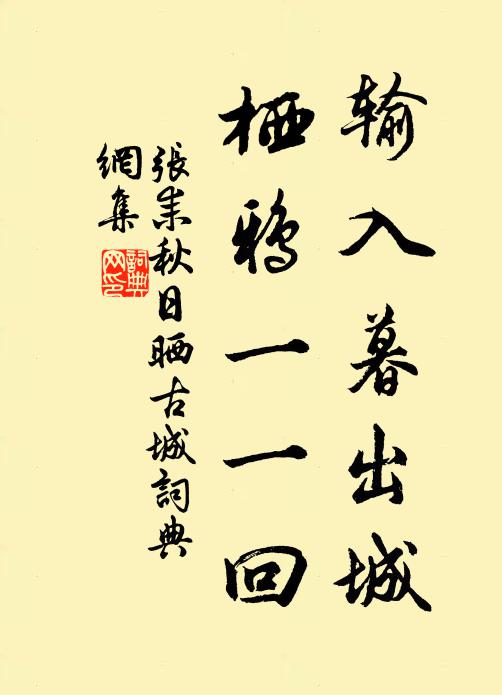 输入暮出城
栖鸦一一回
張耒秋日晒古城詞典
網集
詞典
网印